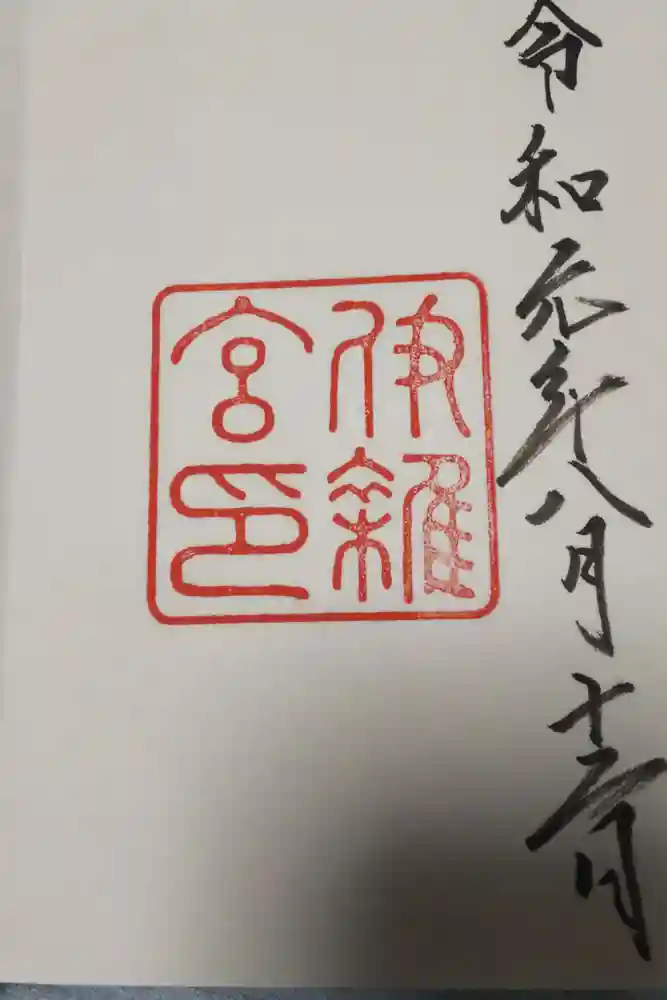 令和元年八月十二日
伊雜
宮印